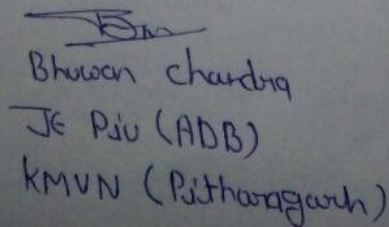 Bhuwan chandra
JE PiU (ADB)
KMVN (Pithoragarh)